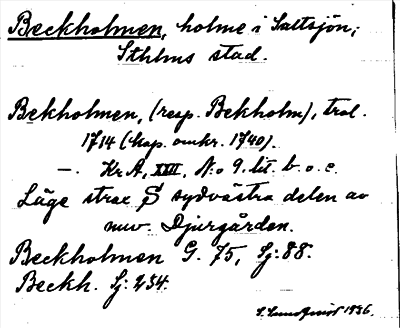 Beckholmen, holme i Saltsjön,
Sthlms stad.
Bekholmen, (resp. Bekholm), trol.
1714 (kop. omkr. 1740).
—. Kr A, XXII, No 9. lit. b. o. c.
Läge strax S sydvästra delen av
nuv. Djurgården.
Beckholmen G. 75, Sj: 88.
Beckh. Sj: 234.
S. 1936.